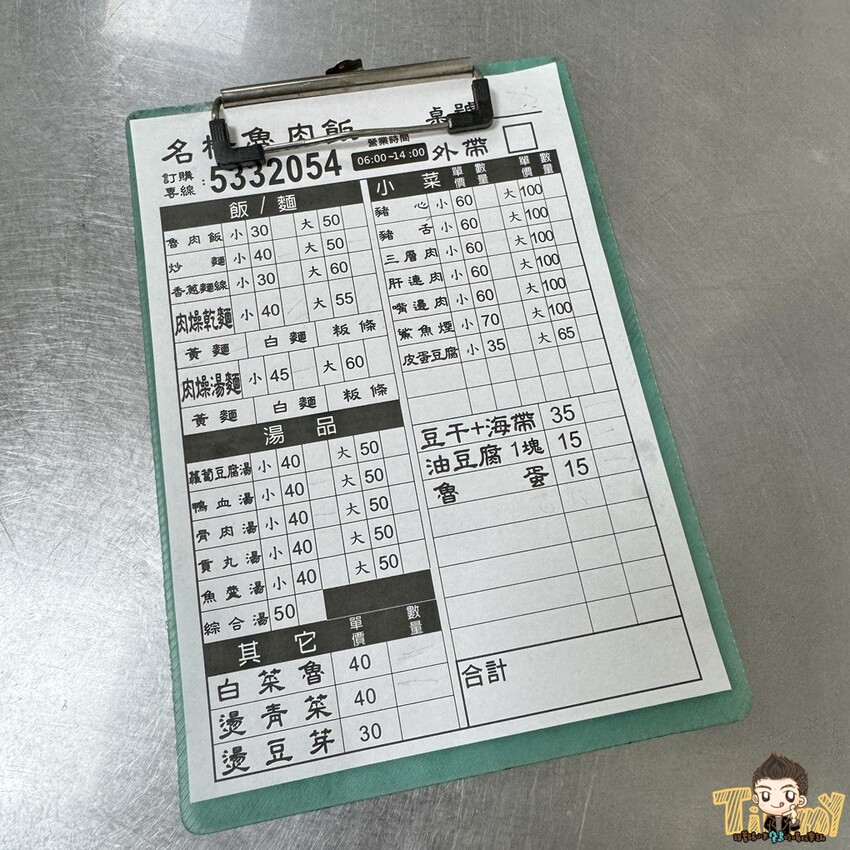 桌號
名 魯肉飯
營業時間
外帶
訂購專線：5332054
06:00~14:00
飯/麵
魯肉飯 小 30 大 50
炒麵 小 40 大 50
香蔥麵線 小 30 大 60
肉燥乾麵 小 40 大 55
黃麵 白麵 粄條
肉燥湯麵 小 45 大 60
黃麵 白麵 粄條
湯品
蘿蔔豆腐湯 小 40 大 50
鴨血湯 小 40 大 50
骨肉湯 小 40 大 50
貢丸湯 小 40 大 50
魚羹湯 小 40 大 50
綜合湯 50
其它 單價 數量
白菜魯 40
燙青菜 40
燙豆芽 30
小菜 單價 數量 單價 數量
豬心 小 60 大 100
豬舌 小 60 大 100
三層肉 小 60 大 100
肝連肉 小 60 大 100
嘴邊肉 小 60 大 100
鯊魚煙 小 70 大 100
皮蛋豆腐 小 35 大 65
豆干+海帶 35
油豆腐1塊 15
魯蛋 15
合計